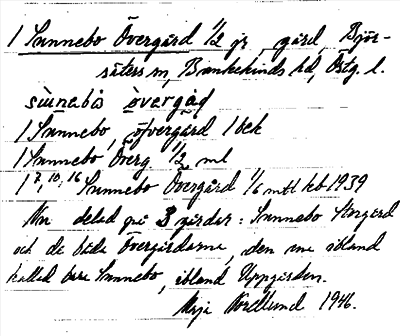 1 Sannebo Övergård 1/2 jr, gård, Björ-
säters sn, Bankekinds hd, Östg. l.
sùnabò òvergåd
1 Sannebo, öfvergård 1 bek
1 Sannebo Överg 1/2 ml
1 7, 10, 16 Sannebo Övergård 1/6 mtl kb 1939
Nu delad på 3 gårdar: Sannebo Storgård
och de båda Övergårdarne, den ene ibland
kallad bara Sannebo, ibland Uppgården.
Maja 1946.